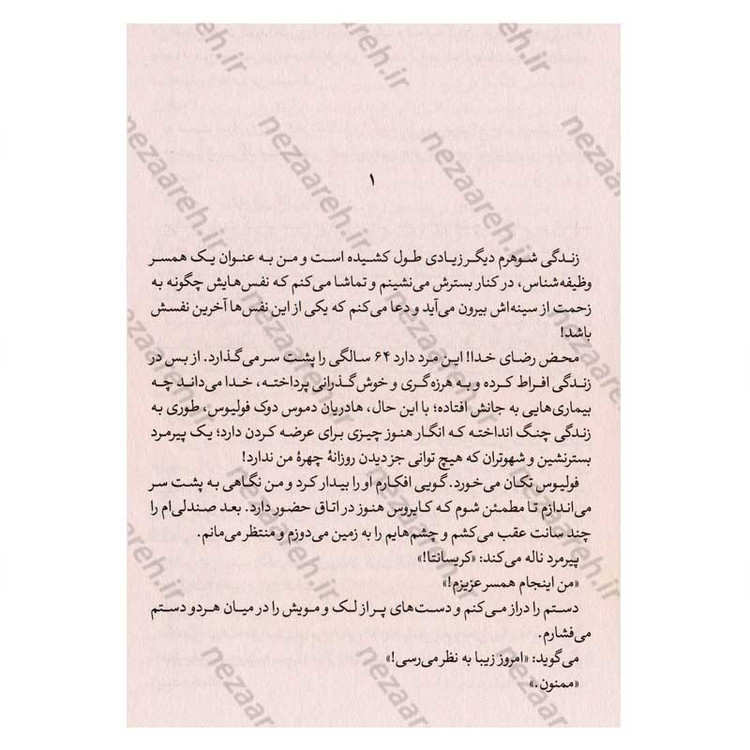 ۱
زندگی شوهرم دیگر زیادی طول کشیده است و من به عنوان یک همسر
وظیفه‌شناس، در کنار بسترش می‌نشینم و تماشا می‌کنم که نفس‌هایش چگونه به
زحمت از سینه‌اش بیرون می‌آید و دعا می‌کنم که یکی از این نفس‌ها آخرین نفسش
باشد!
محض رضای خدا! این مرد دارد ۶۴ سالگی را پشت سر می‌گذارد. از بس در
زندگی افراط کرده و به هرزه‌گری و خوش‌گذرانی پرداخته، خدا می‌داند چه
بیماری‌هایی به جانش افتاده؛ با این حال، هادریان دموس دوک فولیوس، طوری به
زندگی چنگ انداخته که انگار هنوز چیزی برای عرضه کردن دارد؛ یک پیرمرد
بسترنشین و شهوتران که هیچ توانی جز دیدن روزانهٔ چهرهٔ من ندارد!
فولیوس تکان می‌خورد. گویی افکارم او را بیدار کرد و من نگاهی به پشت سر
می‌اندازم تا مطمئن شوم که کایروس هنوز در اتاق حضور دارد. بعد صندلی‌ام را
چند سانت عقب می‌کشم و چشم‌هایم را به زمین می‌دوزم و منتظر می‌مانم.
پیرمرد ناله می‌کند: «کریسانتا!»
«من اینجام همسر عزیزم!»
دستم را دراز می‌کنم و دست‌های پر از لک و مویش را در میان هر دو دستم
می‌فشارم.
می‌گوید: «امروز زیبا به نظر می‌رسی!»
«ممنون.»
nezaareh.ir
nezaareh.ir
nezaareh.ir
nezaareh.ir
nezaareh.ir
nezaareh.ir
nezaareh.ir
nezaareh.ir
nezaareh.ir